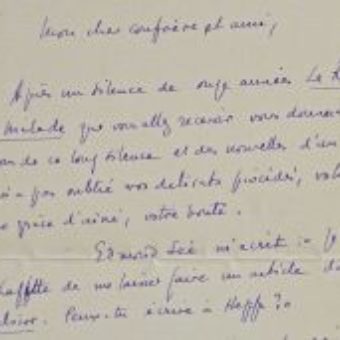 Mon cher confrère et ami,
Après un silence de onze années Le
Malade que vous allez recevoir vous donnera
de ce long silence et des nouvelles d'un
pas oublié vos délicats procédés, votre
grâce d'aîné, votre bonté.
Edmond Sée m'écrit :
de me laisser faire un article
Peux-tu écrire à Hepp ?